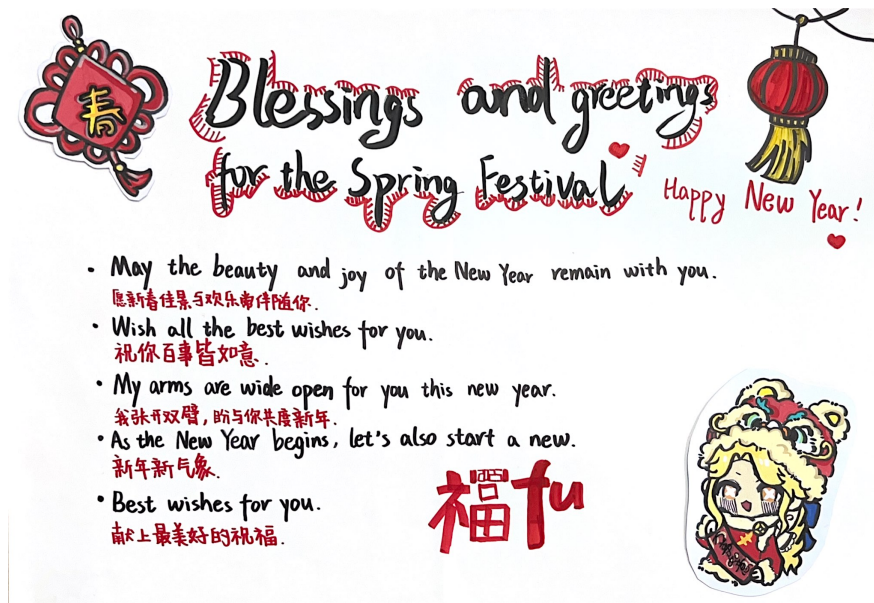 春
Blessings and greetings
for the Spring Festival
Happy New Year!
May the beauty and joy of the New Year remain with you.
愿新春佳景与欢乐常伴随你.
Wish all the best wishes for you.
祝你百事皆如意.
My arms are wide open for you this new year.
我张开双臂,盼与你共度新年.
As the New Year begins, let's also start a new.
新年新气象.
Best wishes for you.
献上最美好的祝福.
福 fu